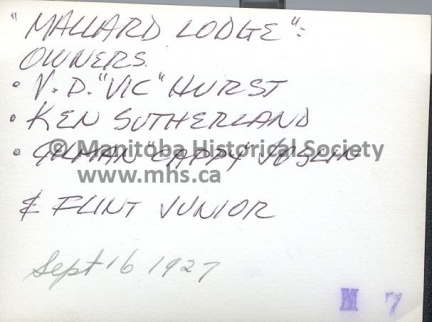 "MALLARD LODGE":
OWNERS.
• V. D. "VIC" HURST
• KEN SUTHERLAND
© Manitoba Historical Society
www.mhs.ca
& FLINT JUNIOR
Sept 16 1927
M 7